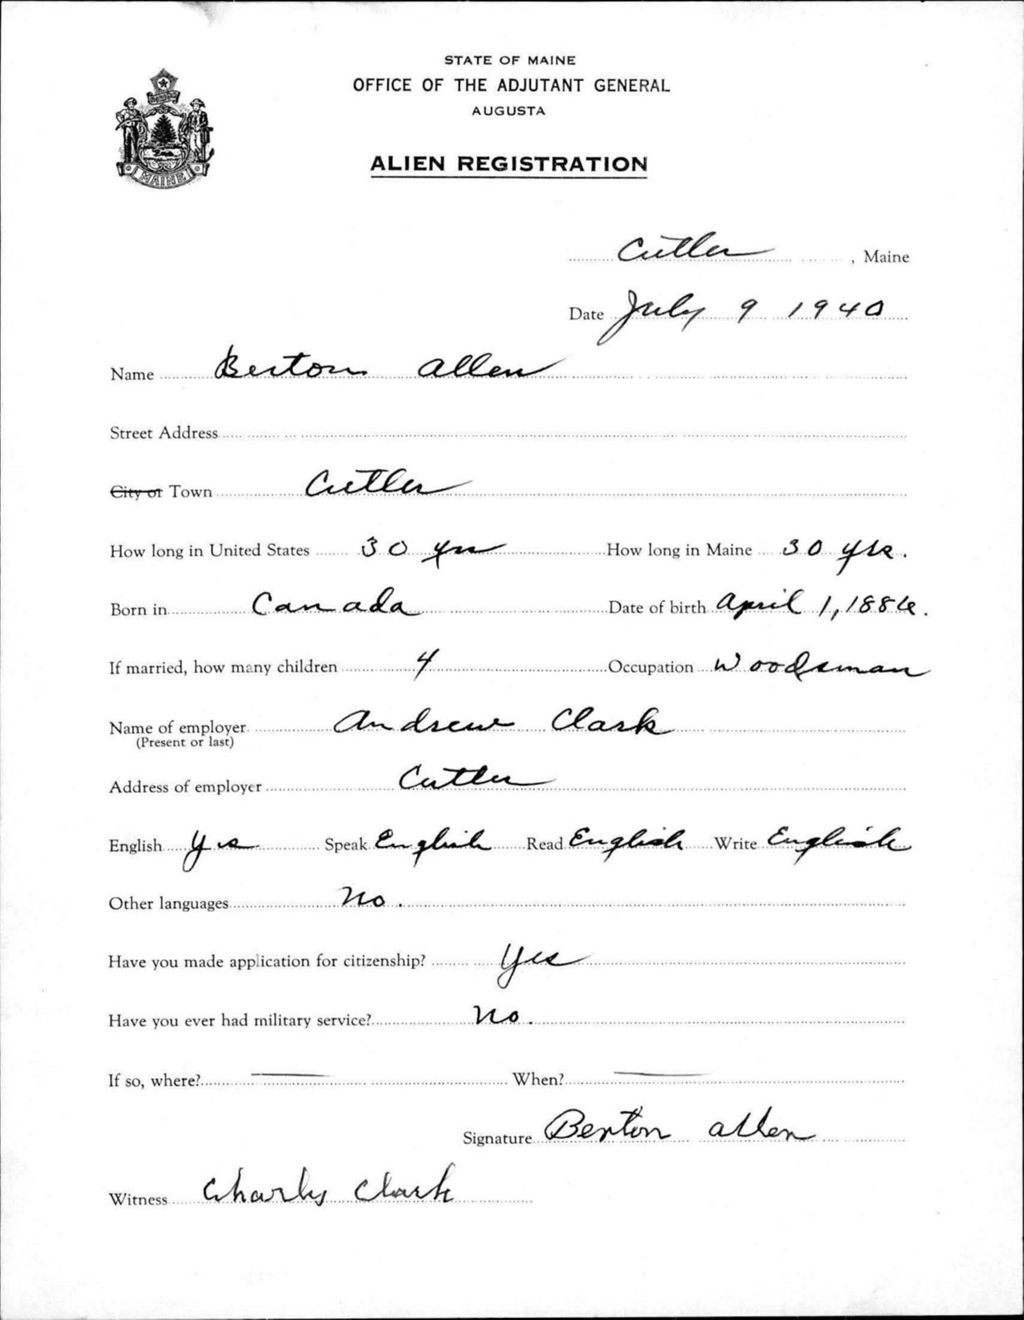 STATE OF MAINE
OFFICE OF THE ADJUTANT GENERAL
AUGUSTA
MAINE
ALIEN REGISTRATION
Cutler, Maine
Date July 9 1940
Name Berton Allen
Street Address
City or Town Cutler
How long in United States 30 yrs How long in Maine 30 yrs.
Born in Canada Date of birth April 1, 1886.
If married, how many children 4 Occupation Woodsman
Name of employer Andrew Clark
(Present or last)
Address of employer Cutler
English Yes Speak English Read English Write English
Other languages No.
Have you made application for citizenship? Yes
Have you ever had military service? No.
If so, where? — When? —
Signature Berton Allen
Witness Charly Clark